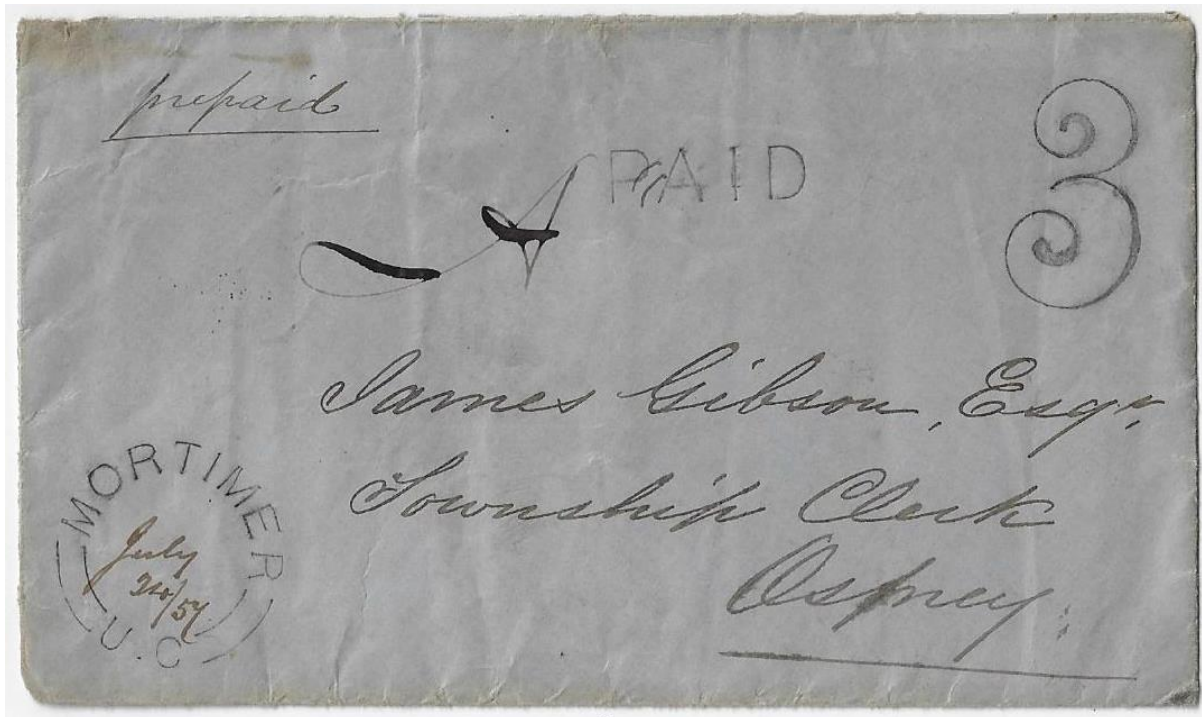 prepaid
PAID
3
James Gibson, Esqr,
Township Clerk
Osprey.
MORTIMER
July
24/57
U.C